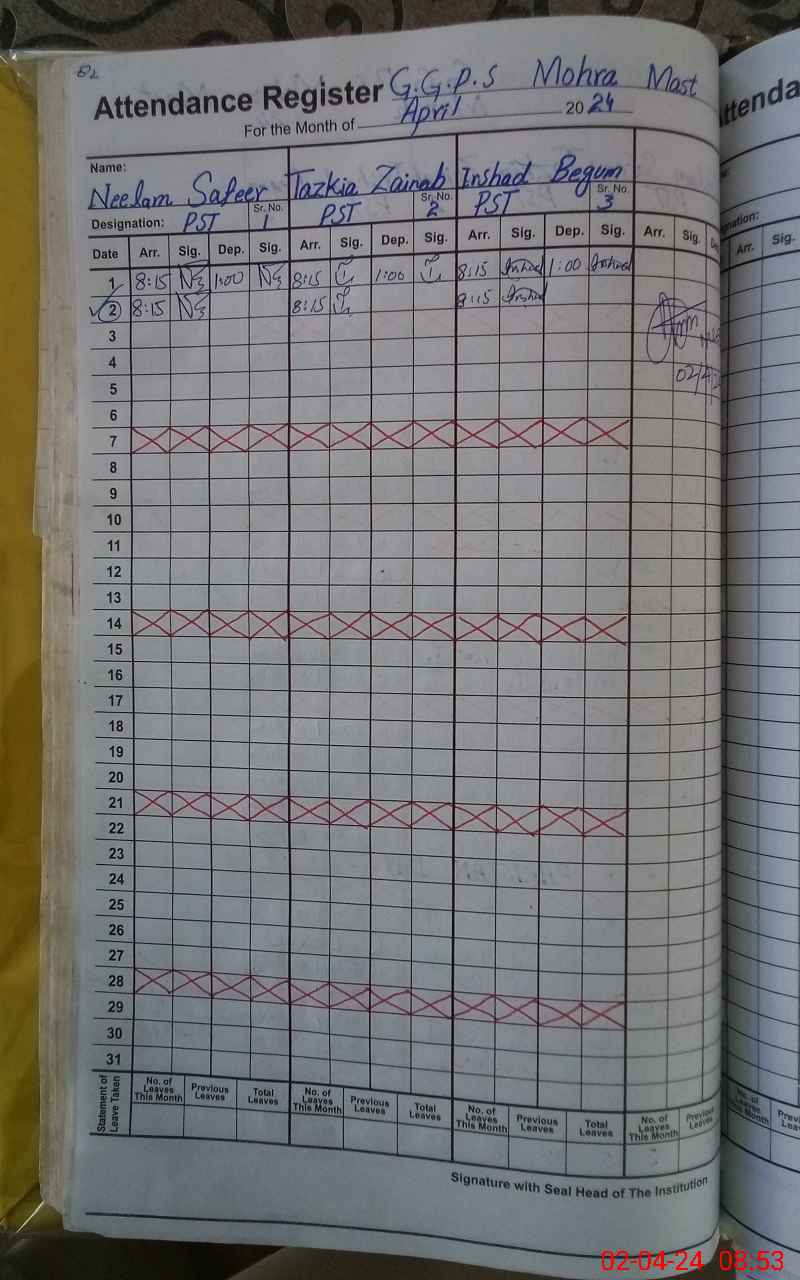 82
Attendance Register G.G.P.S Mohra Mast
For the Month of April 2024
Name:
Neelam Safeer Tazkia Zainab Inshad Begum
Designation: PST Sr. No. 1 PST Sr. No. 2 PST Sr. No. 3
Date Arr. Sig. Dep. Sig. Arr. Sig. Dep. Sig. Arr. Sig. Dep. Sig. Arr. Sig.
1 8:15 1:00 8:15 1:00 8:15 Inshad 1:00 Inshad
2 8:15 8:15 8:15 Inshad
3
4
5
6
7
8
9
10
11
12
13
14
15
16
17
18
19
20
21
22
23
24
25
26
27
28
29
30
31
Statement of Leave Taken No. of Leaves This Month Previous Leaves Total Leaves No. of Leaves This Month Previous Leaves Total Leaves No. of Leaves This Month Previous Leaves Total Leaves No. of Leaves This Month Previous Leaves
Signature with Seal Head of The Institution
Arr. Sig.
02-04-24 08:53